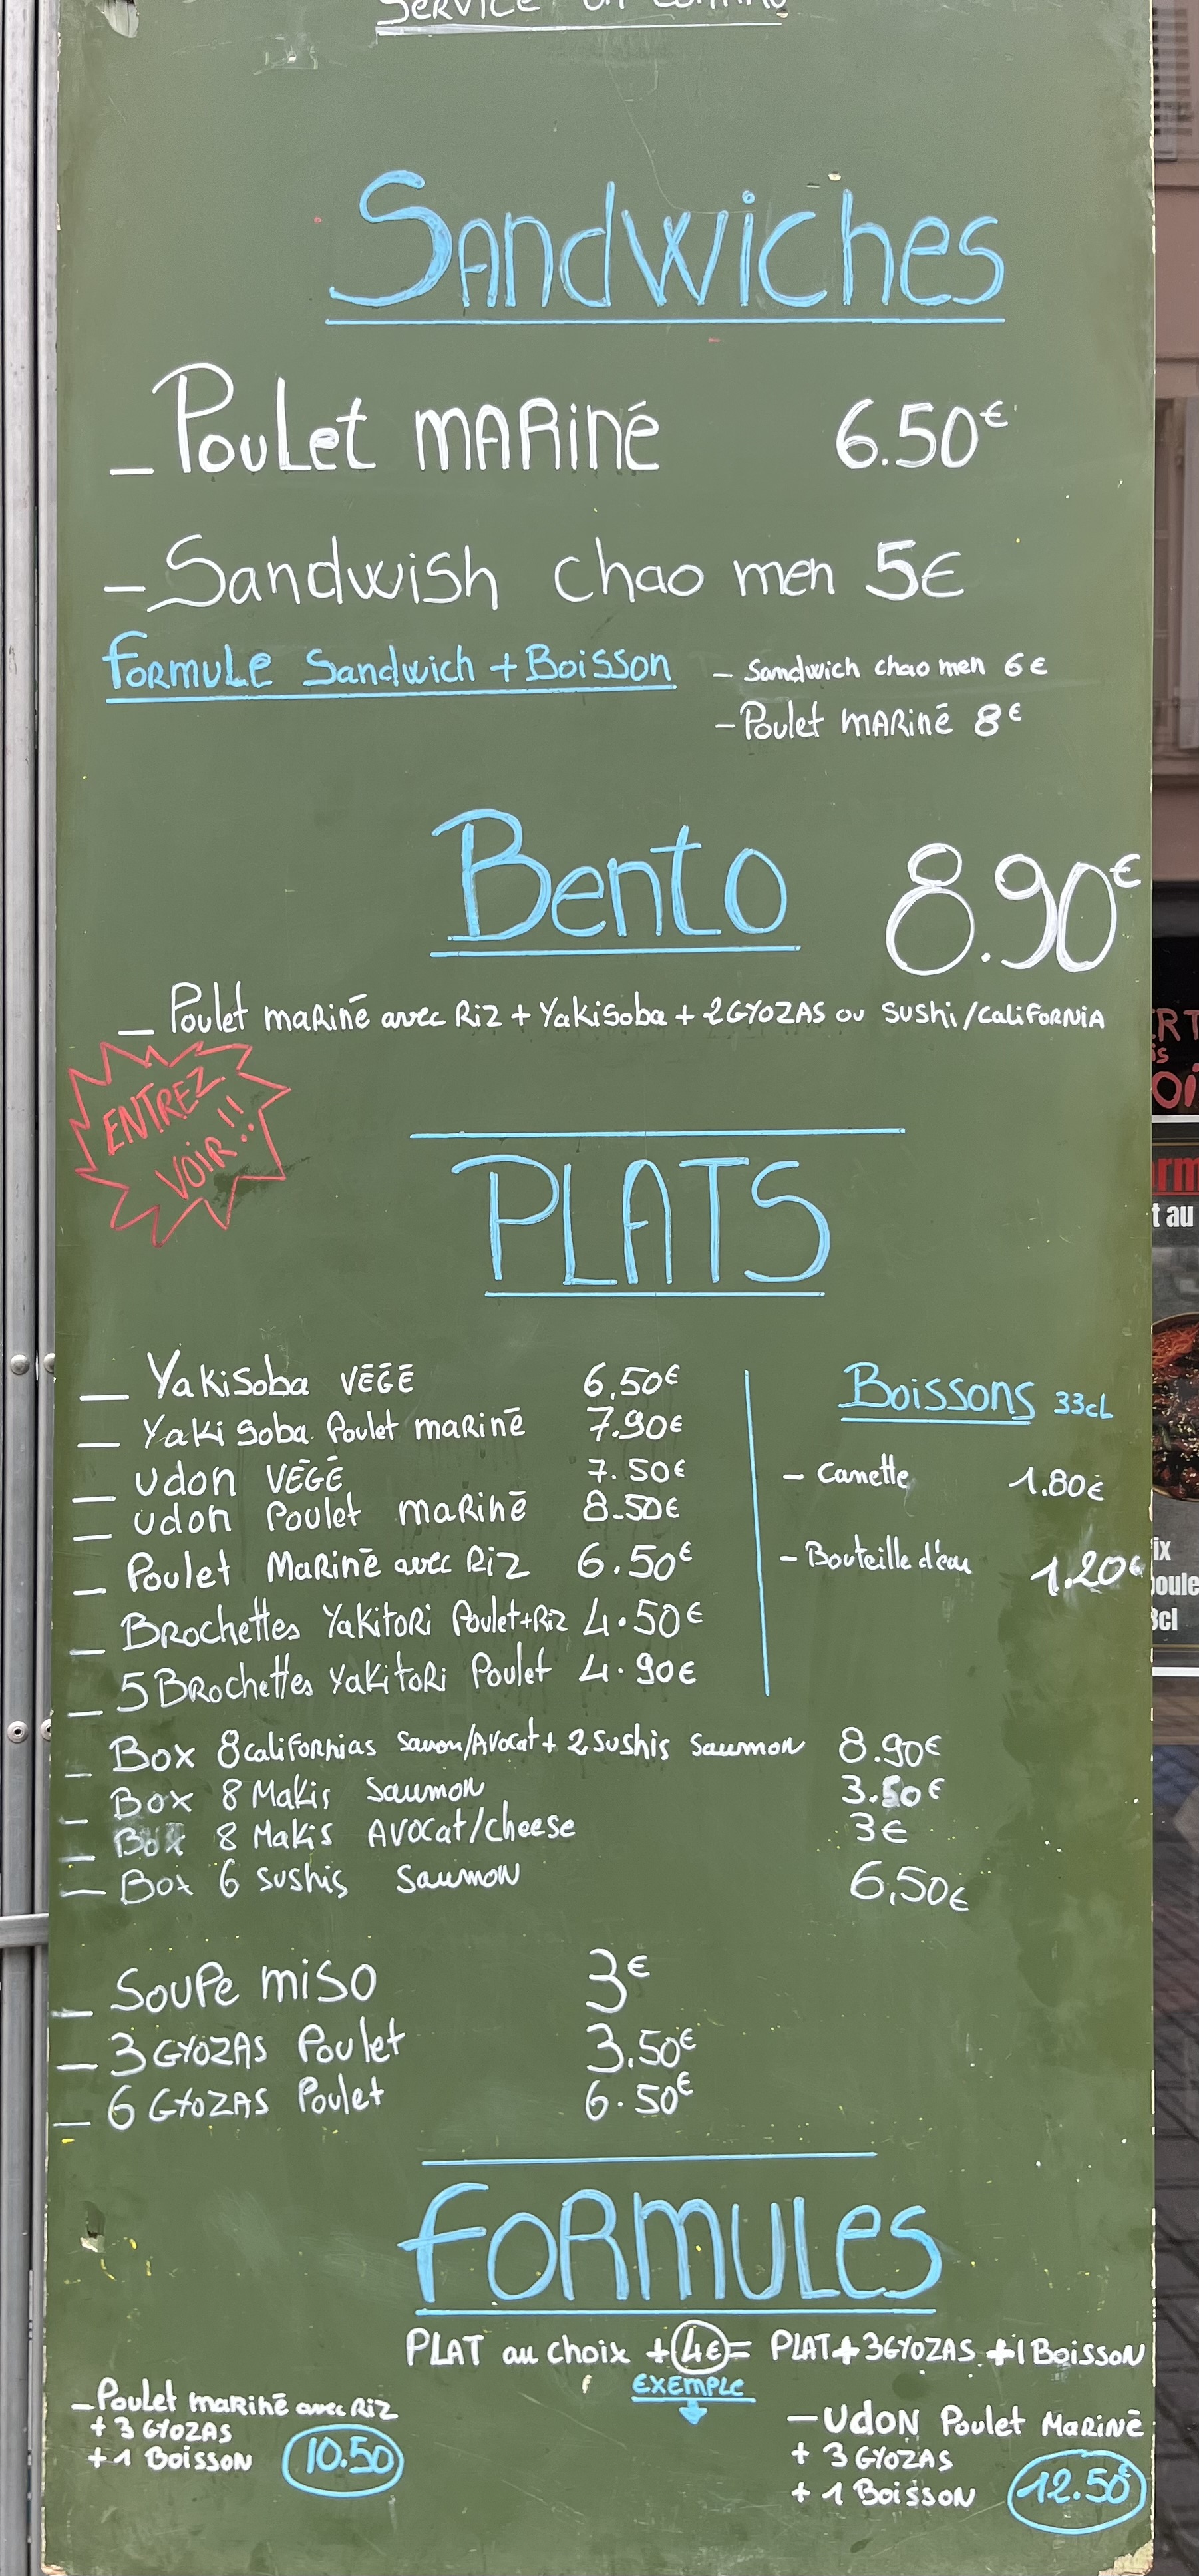 SERVICE en continu
SANDWiCHes
_ Poulet MARiné 6.50€
_ Sandwish chao men 5€
FORMULE Sandwich + Boisson - Sandwich chao men 6€
- Poulet MARiné 8€
Bento 8.90€
_ Poulet mariné avec Riz + Yakisoba + 2 GYOZAS ou Sushi/CaliFORNiA
ENTREZ
VOIR!!
PLATS
_ Yakisoba VÉGÉ 6.50€
_ Yaki soba Poulet mariné 7.90€
_ Udon VÉGÉ 7.50€
_ Udon Poulet mariné 8.50€
_ Poulet Mariné avec Riz 6.50€
_ Brochettes Yakitori Poulet+Riz 4.50€
_ 5 Brochettes Yakitori Poulet 4.90€
Boissons 33cL
- Canette 1.80€
- Bouteille d'eau 1.20€
_ Box 8 califorNias Saumon/Avocat + 2 Sushis Saumon 8.90€
_ Box 8 Makis Saumon 3.50€
_ Box 8 Makis AVOCAT/cheese 3€
_ Box 6 sushis Saumon 6,50€
_ Soupe miso 3€
_ 3 GYOZAS Poulet 3.50€
_ 6 GYOZAS Poulet 6.50€
FORMULES
PLAT au choix + 4€ = PLAT + 3 GYOZAS + 1 Boisson
EXEMPLE
- Poulet mariné avec Riz
+ 3 GYOZAS
+ 1 Boisson 10.50
- Udon Poulet Mariné
+ 3 GYOZAS
+ 1 Boisson 12.50€
ERT
is
OI
arm
t au
ix
boule
3cl